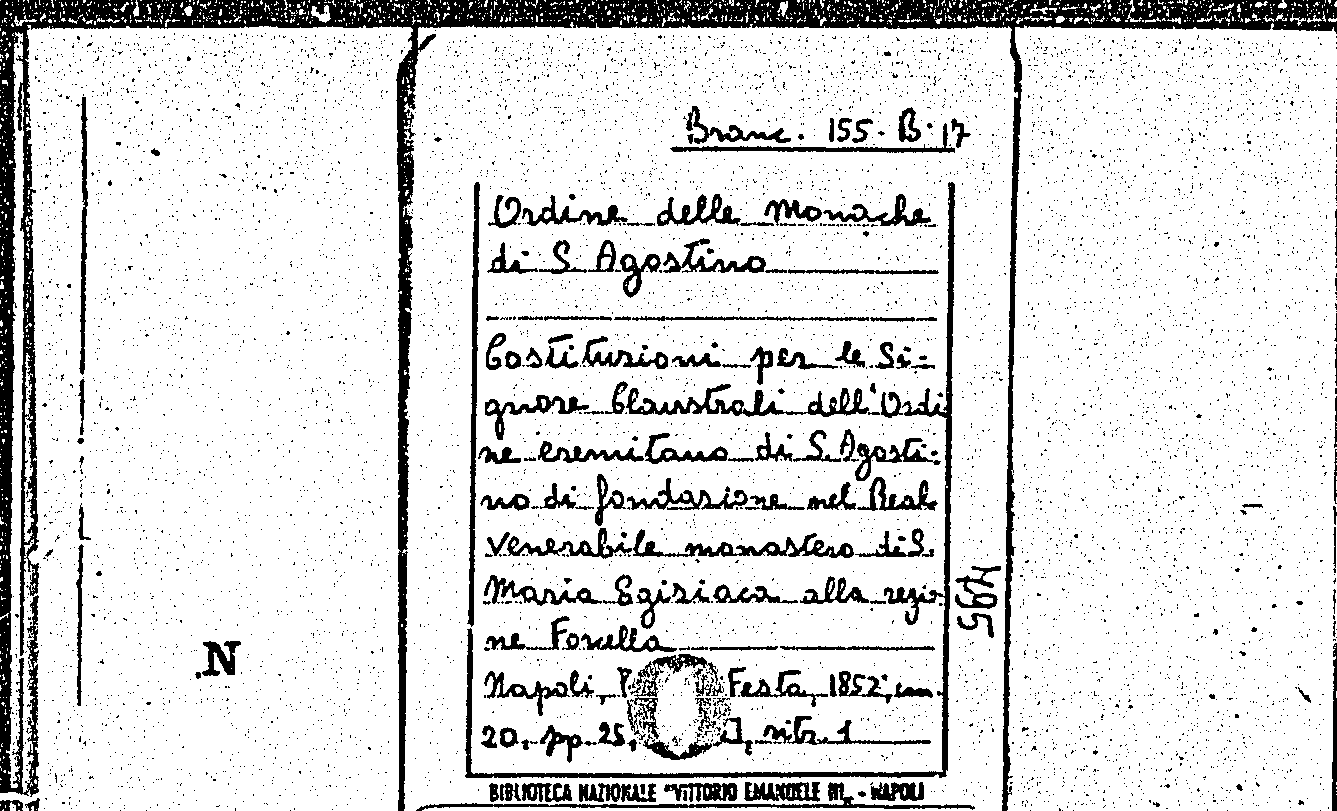 Branc. 155. B. 17
Ordine delle Monache
di S. Agostino
Costituzioni per le Si-
gnore Claustrali dell'Ordi
ne eremitano di S. Agosti-
no di fondazione nel Real
Venerabile monastero di S.
Maria Egiziaca alla regio-
ne Forcella
Napoli, Festa, 1852, cm.
20, pp. 25, ], ritr. 1
BIBLIOTECA NAZIONALE "VITTORIO EMANUELE III" - NAPOLI
495
.N